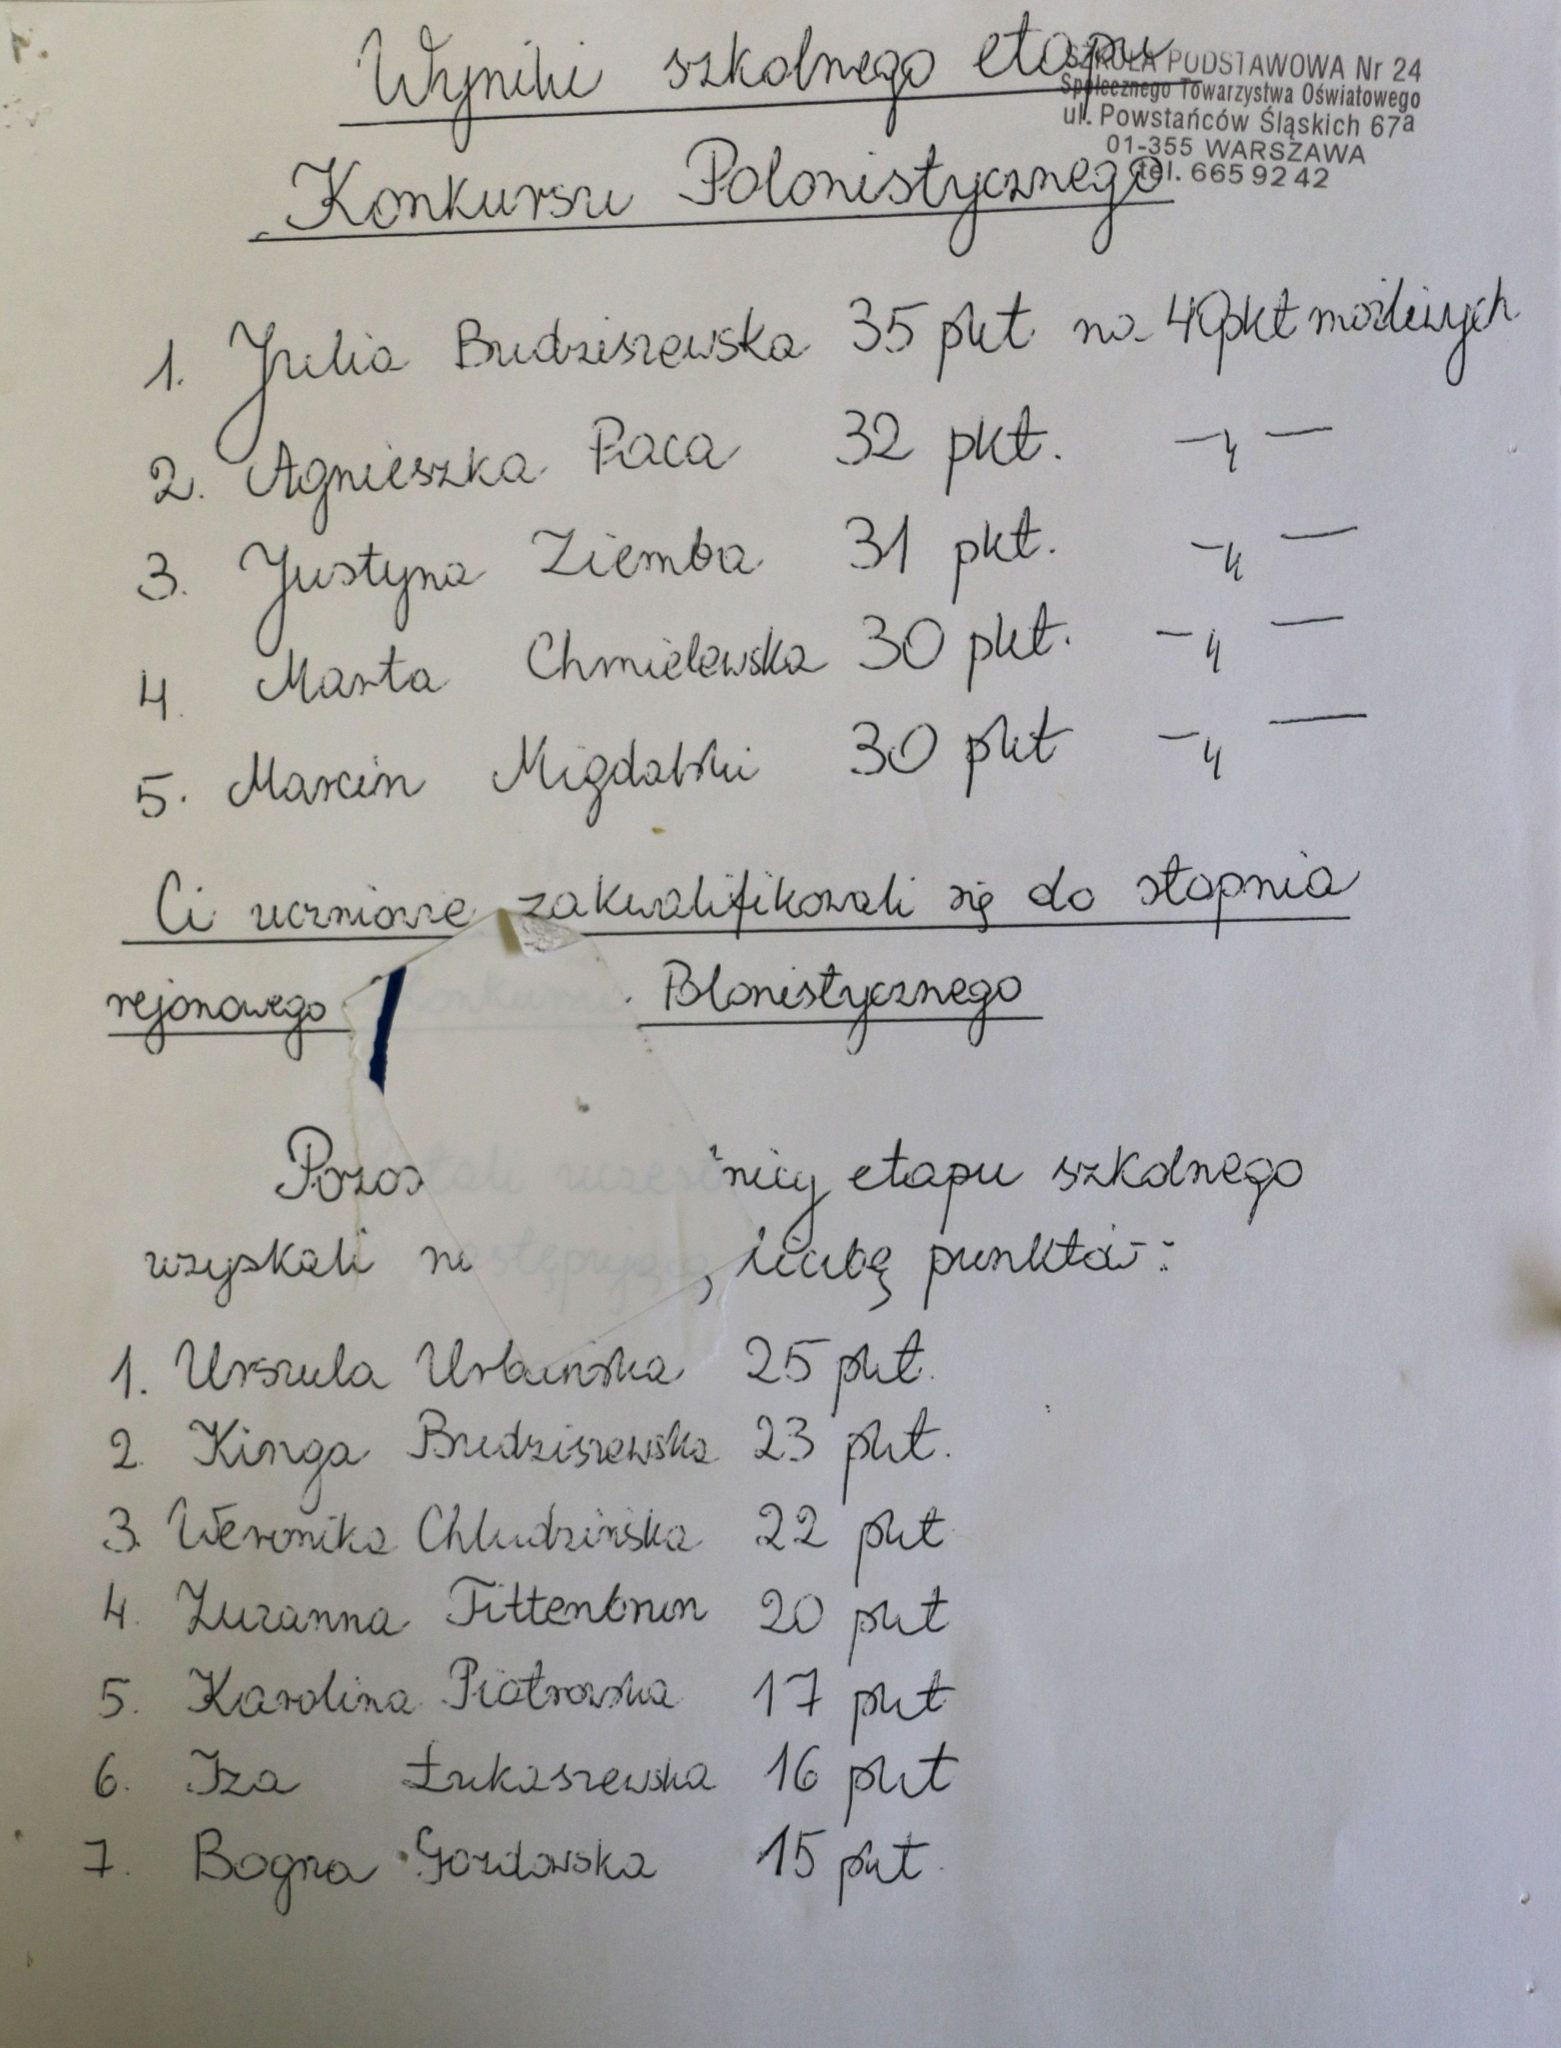 Wyniki szkolnego etapu
SZKOŁA PODSTAWOWA Nr 24
Społecznego Towarzystwa Oświatowego
ul. Powstańców Śląskich 67a
01-355 WARSZAWA
tel. 665 92 42
Konkursu Polonistycznego
1. Julia Budziszewska 35 pkt na 40pkt możliwych
2. Agnieszka Paca 32 pkt. —〃—
3. Justyna Ziemba 31 pkt. —〃—
4. Marta Chmielewska 30 pkt. —〃—
5. Marcin Migdalski 30 pkt —〃—
Ci uczniowie zakwalifikowali się do stopnia
rejonowego Konkursu Polonistycznego
Pozostali uczestnicy etapu szkolnego
uzyskali następującą liczbę punktów:
1. Urszula Urbańska 25 pkt.
2. Kinga Budziszewska 23 pkt.
3. Weronika Chludzińska 22 pkt
4. Zuzanna Tittenbrun 20 pkt
5. Karolina Piotrowska 17 pkt
6. Iza Łukaszewska 16 pkt
7. Bogna Gozdowska 15 pkt.